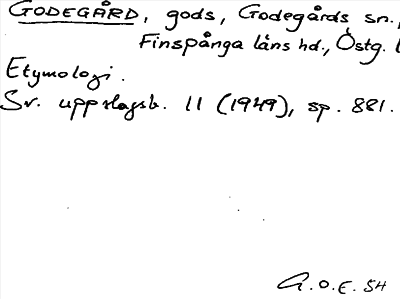 GODEGÅRD, gods, Godegårds sn.,
Finspånga läns hd., Östg. l
Etymologi.
Sv. uppslagsb. 11 (1949), sp. 881.
G.O.E. 54